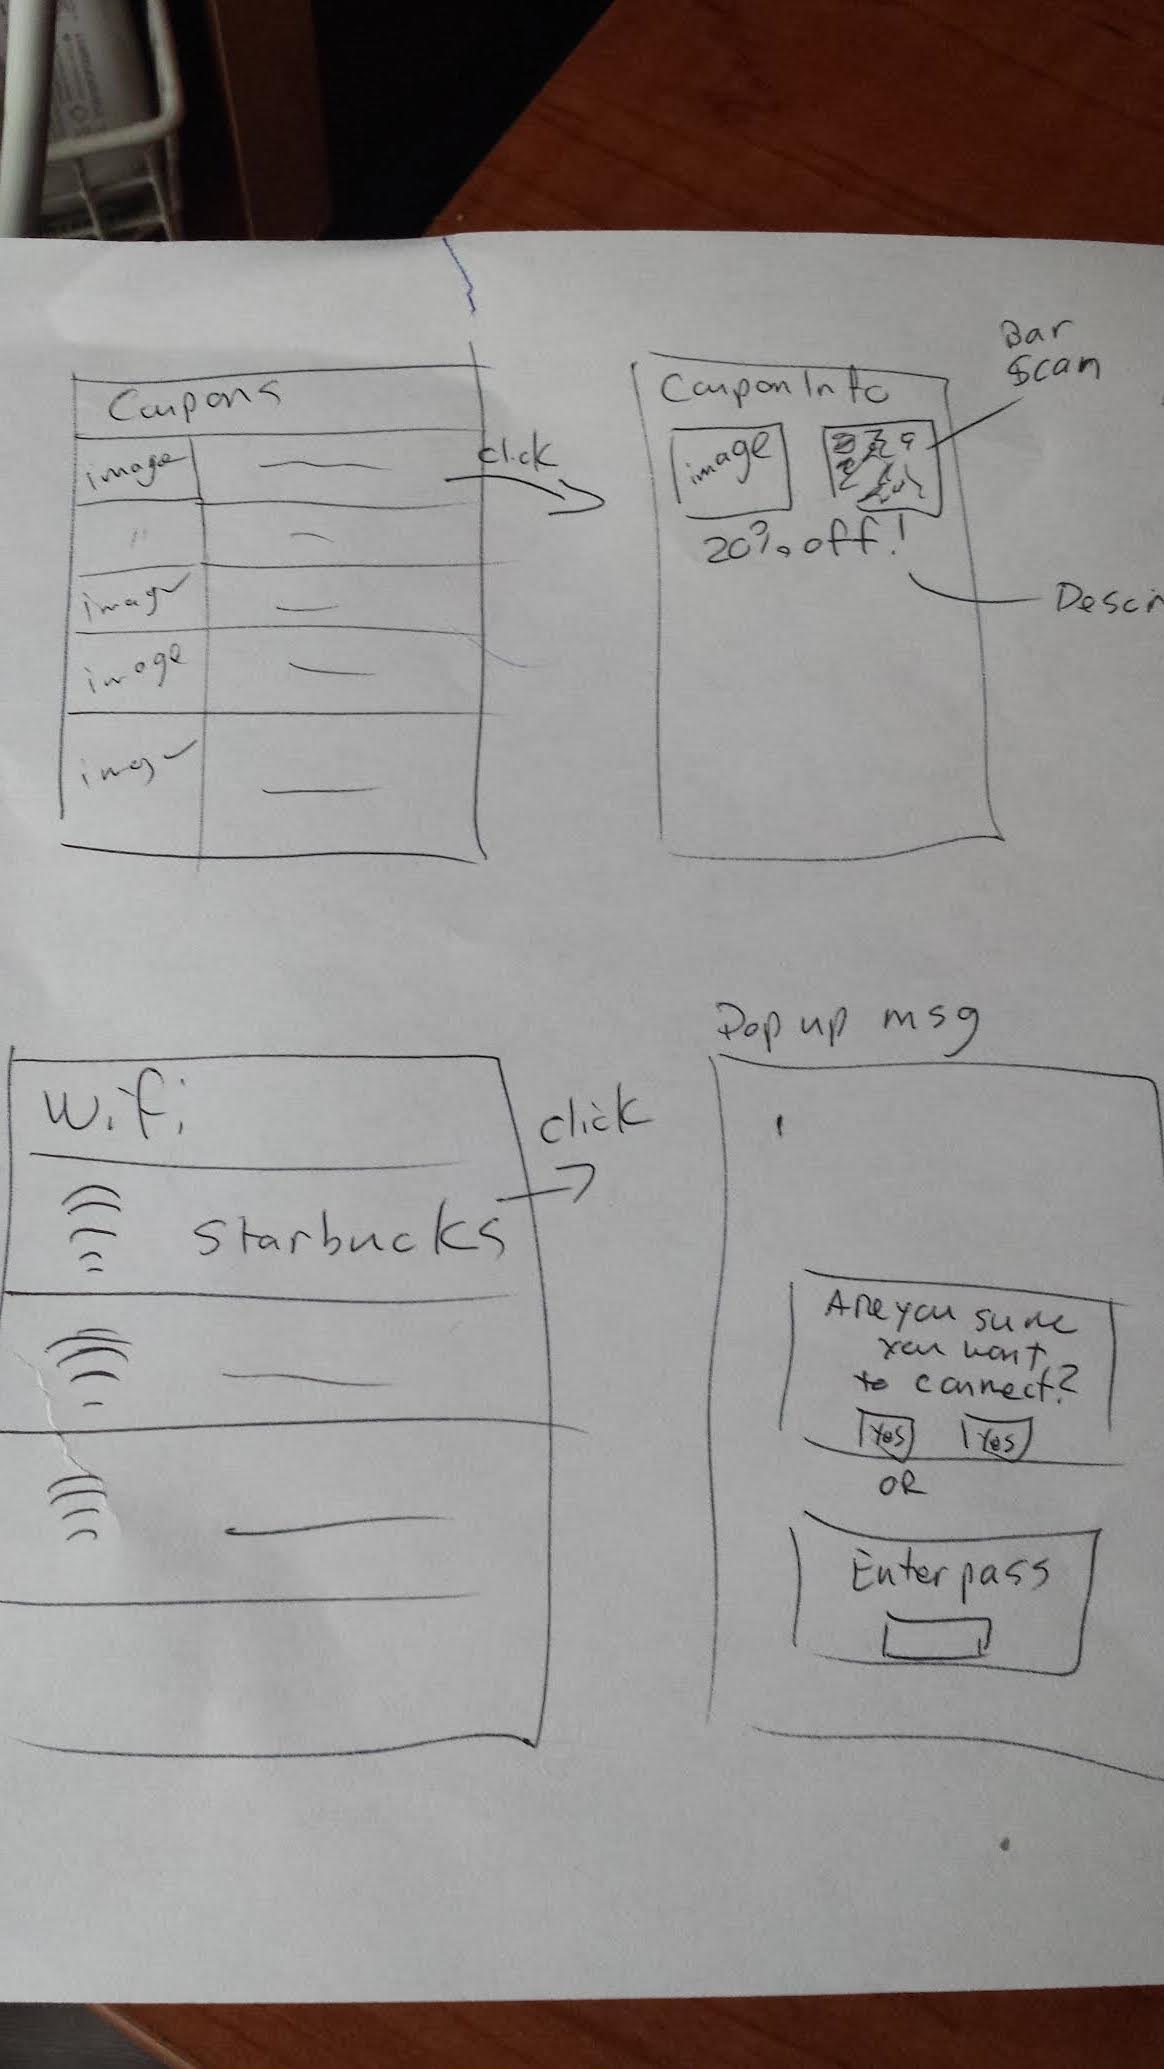 Coupons
image
"
image
image
image
click
Coupon Info
image
20% off!
Bar
Scan
Descr
Wifi
Starbucks
click
Pop up msg
Are you sure
you want
to connect?
Yes Yes
OR
Enter pass